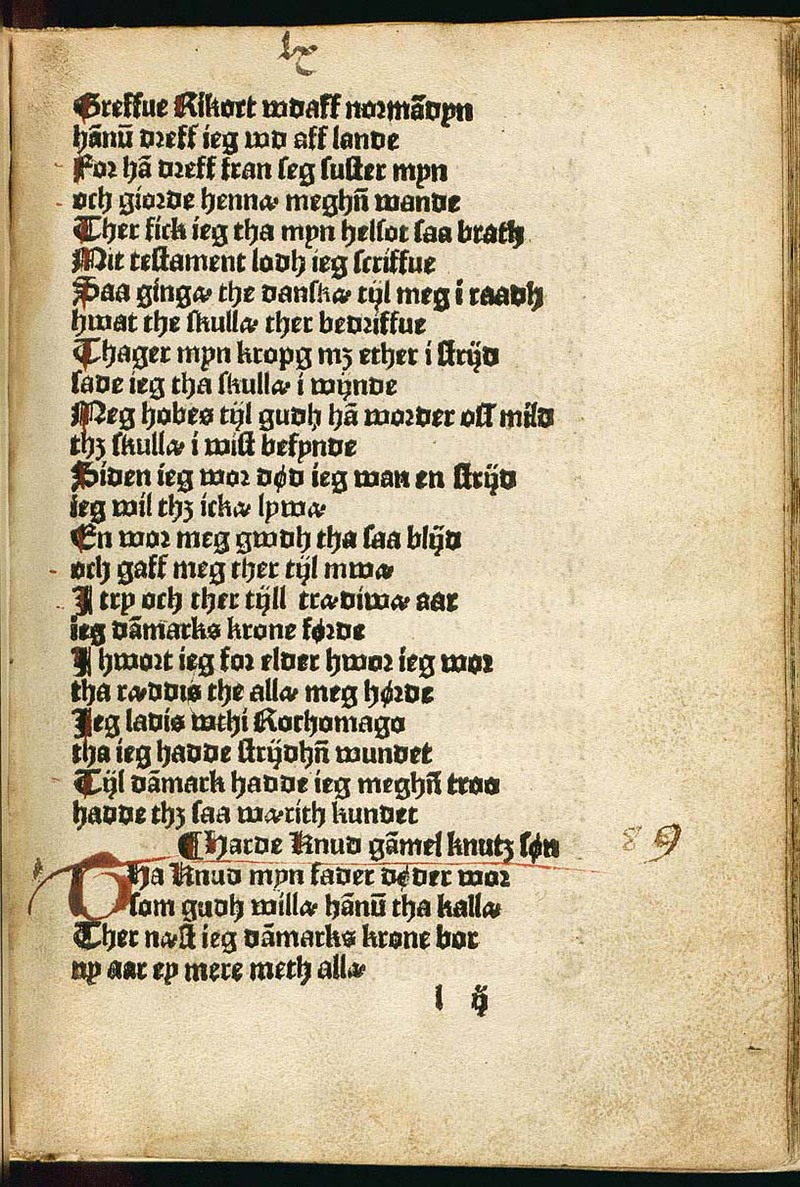 lx
Greffue Rikort wdaff normādyn
hānū dreff ieg wd aff lande
For hā dreff fran seg suster myn
och giorde hennæ meghn̄ wande
Ther fick ieg tha myn helsot saa brath
Mit testament lodh ieg scriffue
Saa gingæ the danskæ tijl meg i raadh
hwat the skullæ ther bedriffue
Thager myn kropg mꝫ ether i strijd
sade ieg tha skullæ i wijnde
Meg hobes tijl gudh hā worder oss mild
thꝫ skullæ i wist befynde
Siden ieg wor død ieg wan en strijd
ieg wil thꝫ ickæ lywæ
En wor meg gwdh tha saa blijd
och gaff meg ther tijl mwæ
I try och ther tijll trædiwæ aar
ieg dāmarks krone førde
I hwort ieg for elder hwor ieg wor
tha ræddis the allæ meg hørde
Jeg ladis wthi Rothomago
tha ieg hadde strijdhn̄ wundet
Tijl dāmark hadde ieg meghn̄ troo
hadde thꝫ saa wærith kundet
¶ Harde Knud gāmel knutꝫ søn
89
THa Knud myn fader døder wor
som gudh willæ hānū tha kallæ
Ther næst ieg dāmarks krone bor
ny aar ey mere meth allæ
l ij